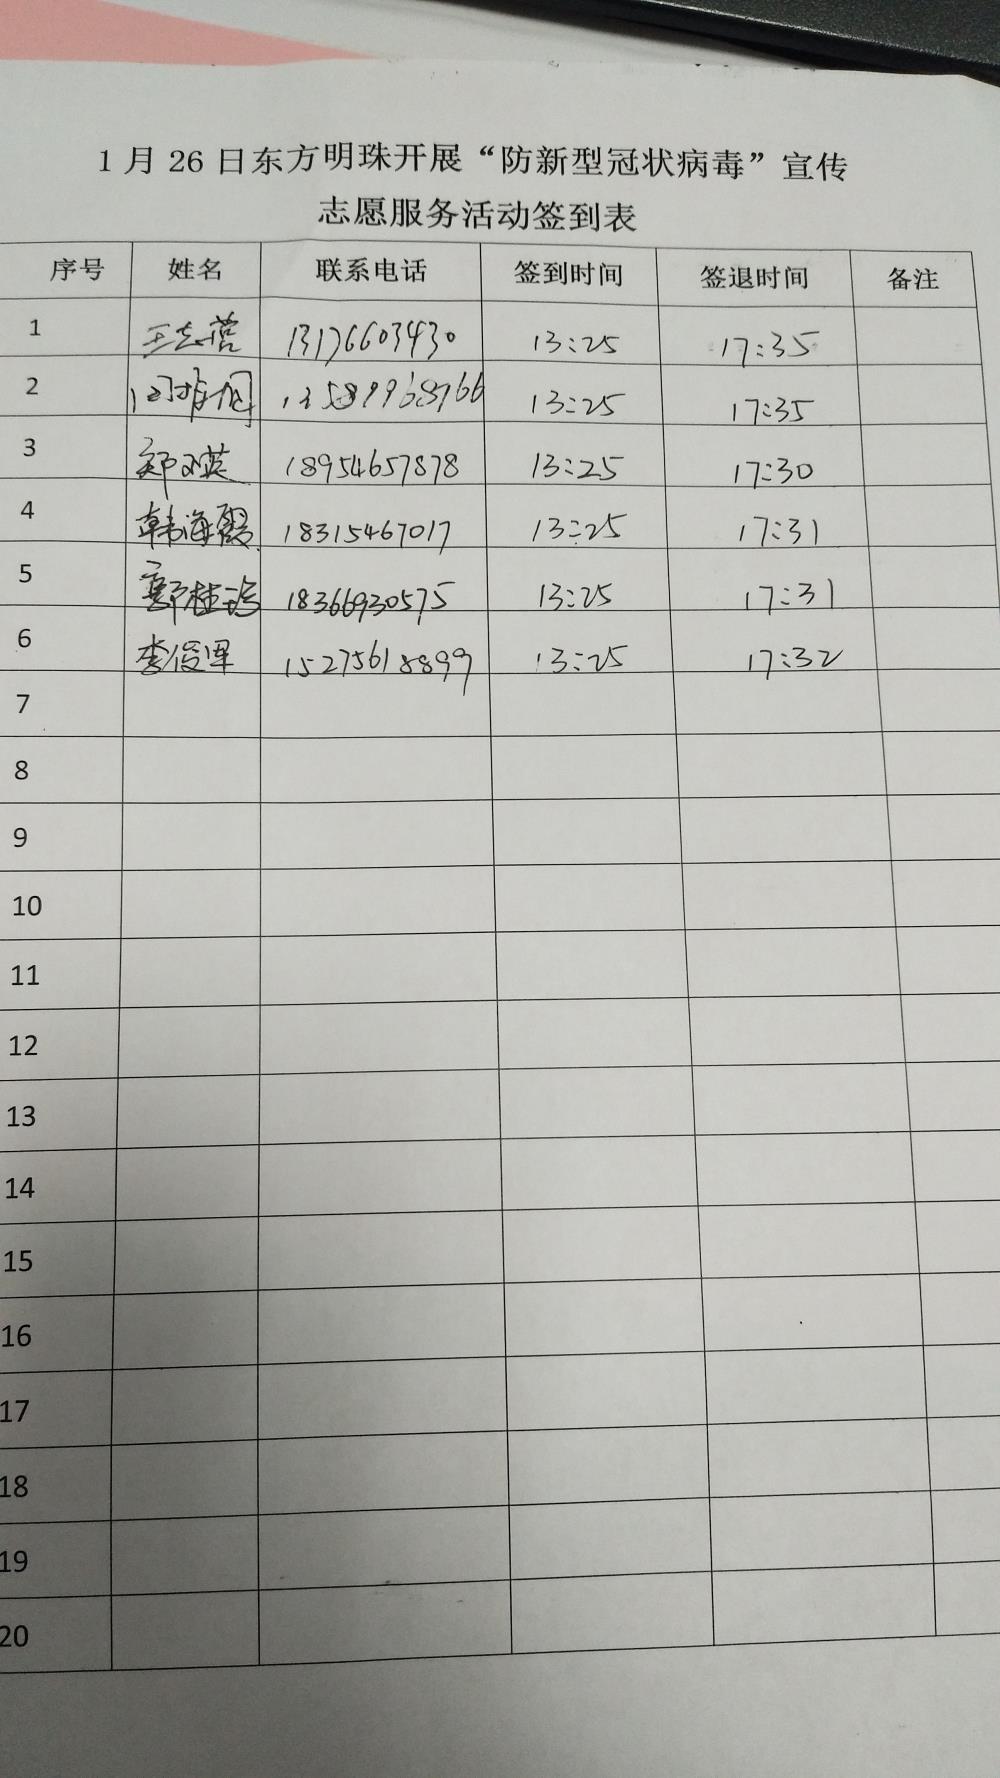 1月26日东方明珠开展“防新型冠状病毒”宣传
志愿服务活动签到表
序号 姓名 联系电话 签到时间 签退时间 备注
1 王志营 13176603430 13:25 17:35
2 13:25 17:35
3 郑双英 18954657878 13:25 17:30
4 韩海霞 18315467017 13:25 17:31
5 郭桂 18366930575 13:25 17:31
6 李俊军 15275618899 13:25 17:32
7
8
9
10
11
12
13
14
15
16
17
18
19
20